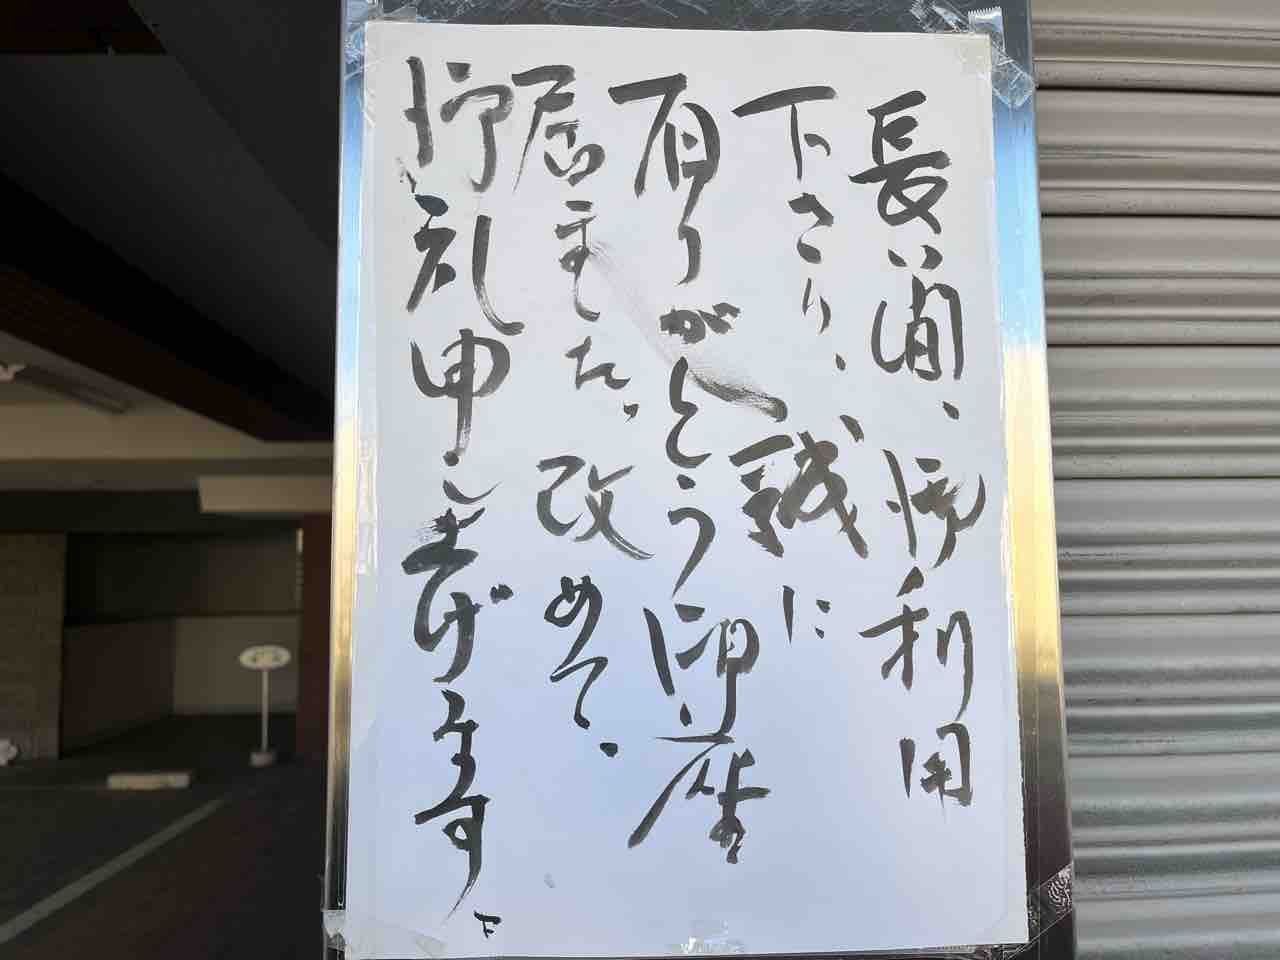 長い間、御利用
下さり、誠に
有りがとう御座
居ました。改めて、
御礼申し上げます。